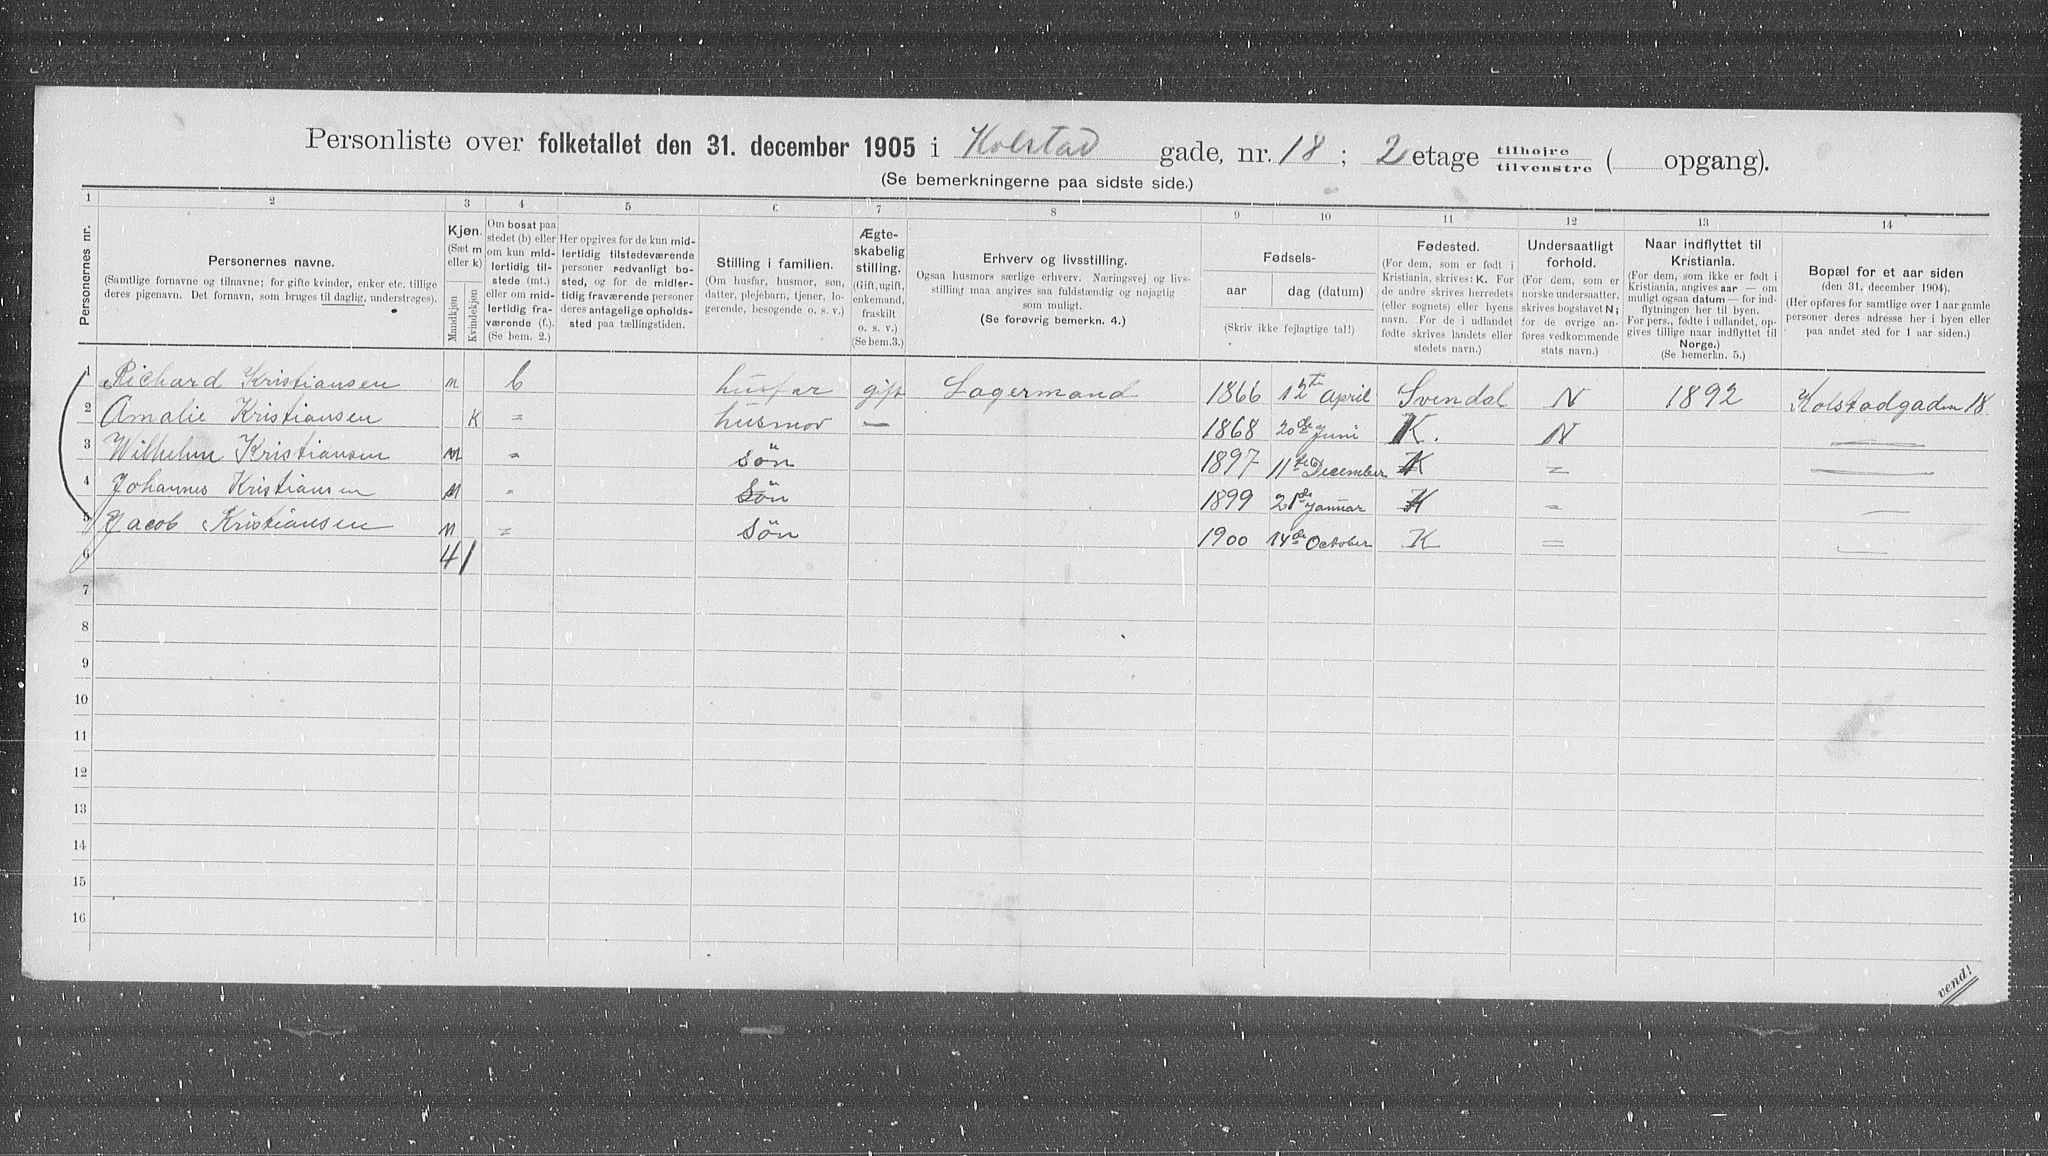 Personliste over folketallet den 31. december 1905 i Kolstad gade, nr. 18; 2 etage tilhøjre / tilvenstre ( opgang).
(Se bemerkningerne paa sidste side.)
1 2 3 4 5 6 7 8 9 10 11 12 13 14
Personernes nr.
Personernes navne.
(Samtlige fornavne og tilnavne; for gifte kvinder, enker etc. tillige
deres pigenavn. Det fornavn, som bruges til daglig, understreges).
Kjøn.
(Sæt m
eller k)
Mandkjøn
Kvindekjøn
Om bosat paa
stedet (b) eller
om kun mid-
lertidig til-
stede (mt.)
eller om mid-
lertidig fra-
værende (f.).
(Se bem. 2.)
Her opgives for de kun mid-
lertidig tilstedeværende
personer sedvanligt bo-
sted, og for de midler-
tidig fraværende personer
deres antagelige opholds-
sted paa tællingstiden.
Stilling i familien.
(Om husfar, husmor, søn,
datter, plejebarn, tjener, lo-
gerende, besøgende o. s. v.)
Ægte-
skabelig
stilling.
(Gift, ugift,
enkemand,
fraskilt
o. s. v.)
(Se bem.3.)
Erhverv og livsstilling.
Ogsaa husmors særlige erhverv. Næringsvej og livs-
stilling maa angives saa fuldstændig og nøjagtig
som muligt.
(Se forøvrig bemerkn. 4.)
Fødsels-
aar dag (datum)
(Skriv ikke fejlagtige tal!)
Fødested.
(For dem, som er født i
Kristiania, skrives: K. For
de andre skrives herredets
(eller sognets) eller byens
navn. For de i udlandet
fødte skrives landets eller
stedets navn.)
Undersaatligt
forhold.
(For dem, som er
norske undersaatter,
skrives bogstavet N;
for de øvrige an-
føres vedkommende
stats navn.)
Naar indflyttet til
Kristiania.
(For dem, som ikke er født i
Kristiania, angives aar — om
muligt ogsaa datum — for ind-
flytningen her til byen.
For pers., fødte i udlandet, op-
gives tillige naar indflyttet til
Norge.)
(Se bemerkn. 5.)
Bopæl for et aar siden
(den 31. december 1904).
(Her opføres for samtlige over 1 aar gamle
personer deres adresse her i byen eller
paa andet sted for 1 aar siden.)
1 Richard Kristiansen m b husfar gift Lagermand 1866 12te April Svendal N 1892 Kolstadgaden 18
2 Amalie Kristiansen K " husmor — 1868 20de Juni K. N —
3 Wilhelm Kristiansen M " sön 1897 11te December K " —
4 Johannes Kristiansen M " sön 1899 21de Januar K " —
5 Jacob Kristiansen M " sön 1900 14de October K " —
6 4 1
7
8
9
10
11
12
13
14
15
16
vend!